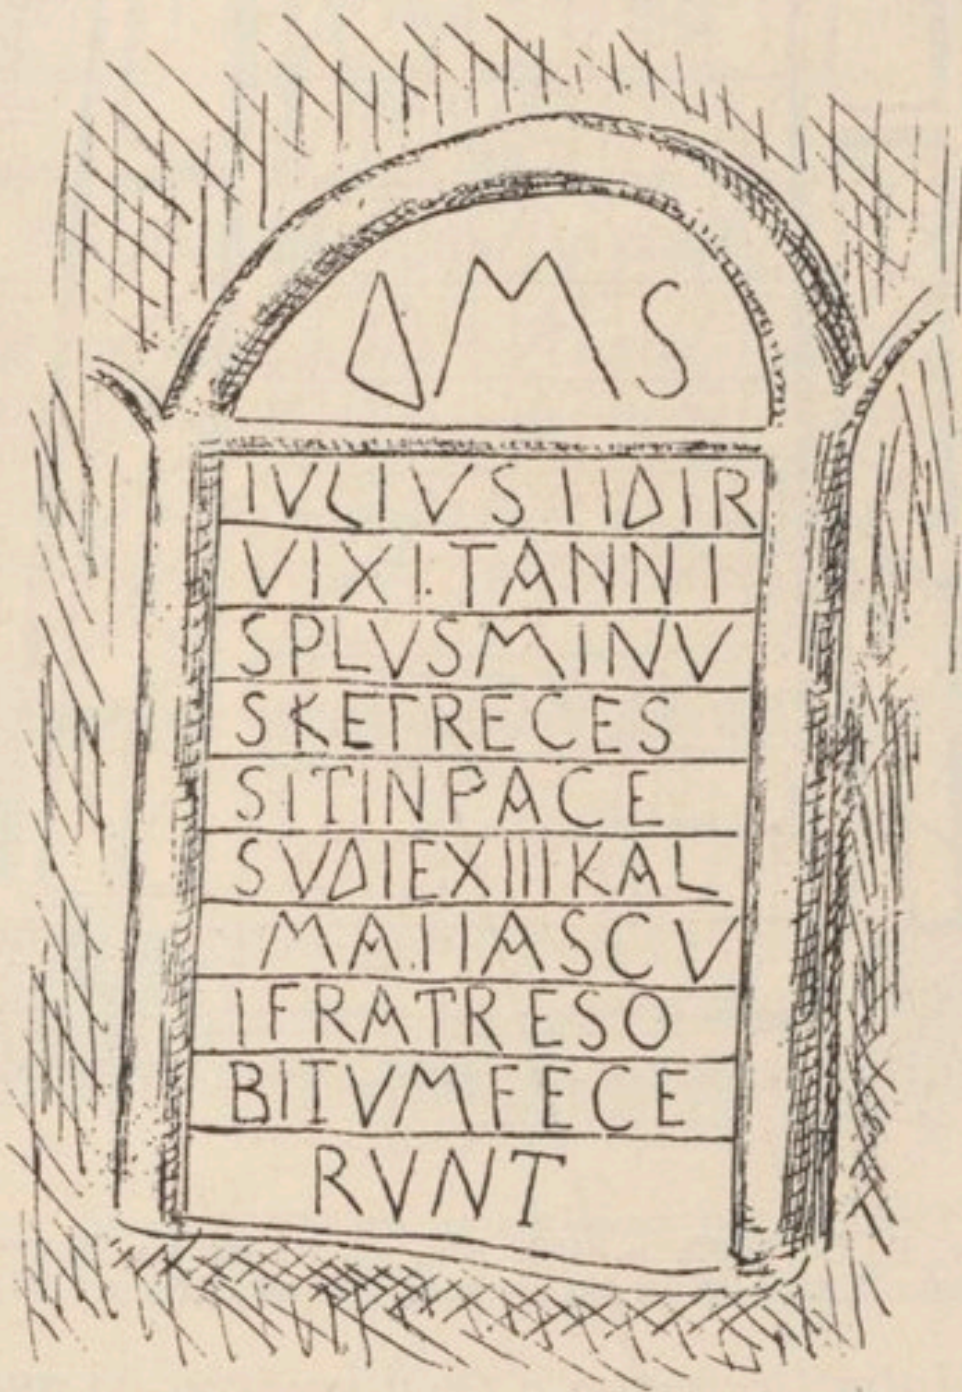 DMS
IVLIVS IIDIR
VIXI.TANNI
SPLVSMINV
SKETRECES
SITINPACE
SVDIEXIIIKAL
MA.IIASCV
IFRATRESO
BITVMFECE
RVNT